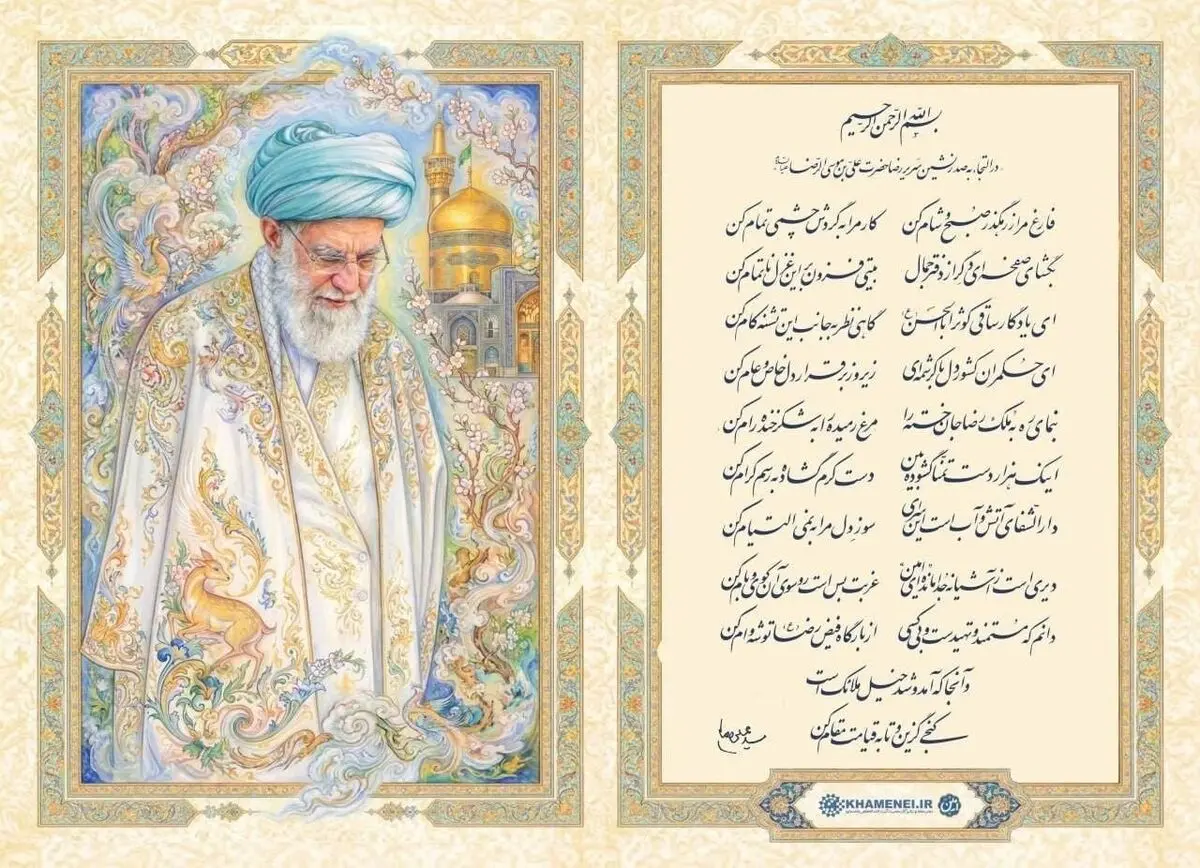 بسم الله الرحمن الرحیم
در التجاء به صدرنشین سریر رضا حضرت علی بن موسی الرضا علیه‌السلام
فارغ مرا ز رهگذر صبح و شام کن کار مرا به گردش چشمی تمام کن
بگشای صفحه‌ای دگر از دفتر جمال بیتی فزون بر این غزل ناتمام کن
ای یادگار ساقی کوثر اباالحسن (ع) گاهی نظر به جانب این تشنه کام کن
ای حکمران کشور دل با کرشمه‌ای زیر و زبر قرار دل خاص و عام کن
بنمای ره به ملک رضا جان خسته را مرغ رمیده را به شکر خنده رام کن
اینک هزار دست تمنا گشوده بین دست کرم گشا و به رسم کرام کن
دارالشفای آتش و آب است این سرای سوز دل مرا به نمی التیام کن
دیری است ز آشیانه جدا مانده‌ای امین غربت بس است رو سوی آن کوی و بام کن
دانم که مستمند و تهیدست و بی کسی از بارگاه فیض رضا (ع) توشه وام کن
و آنجا که آمد و شد خیل ملائک است
کنجی گزین و تا به قیامت مقام کن
KHAMENEI.IR